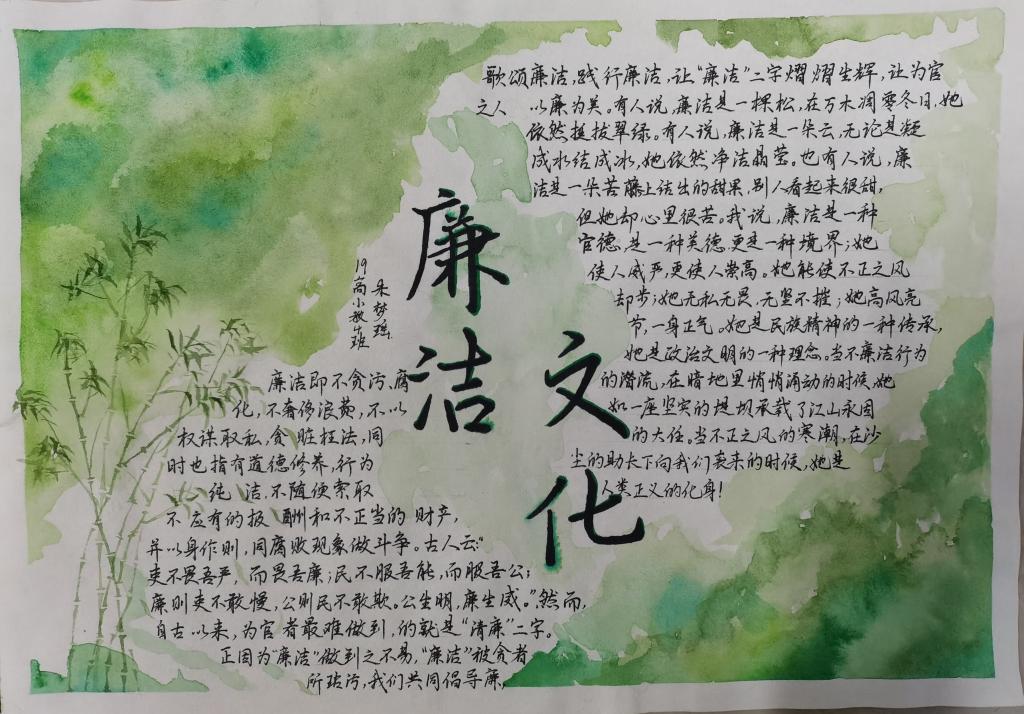 廉洁
文化
19高小教4班
朱梦瑶
歌颂廉洁,践行廉洁,让“廉洁”二字熠熠生辉,让为官
之人 以廉为美。有人说,廉洁是一棵松,在万木凋零冬日,她
依然挺拔翠绿。有人说,廉洁是一朵云,无论是凝
成水结成冰,她依然净洁晶莹。也有人说,廉
洁是一朵苦藤上结出的甜果,别人看起来很甜,
但她却心里很苦。我说,廉洁是一种
官德,是一种美德,更是一种境界;她
使人威严,更使人崇高。她能使不正之风
却步;她无私无畏,无坚不摧;她高风亮
节,一身正气。她是民族精神的一种传承,
她是政治文明的一种理念。当不廉洁行为
的潜流,在暗地里悄悄涌动的时候,她
如一座坚实的堤坝承载了江山永固
的大任。当不正之风的寒潮,在沙
尘的助长下向我们袭来的时候,她是
人类正义的化身!
廉洁即不贪污、腐
化,不奢侈浪费,不以
权谋取私,贪赃枉法,同
时也指有道德修养,行为
纯洁,不随便索取
不应有的报酬和不正当的财产,
并以身作则,同腐败现象做斗争。古人云:“
吏不畏吾严,而畏吾廉;民不服吾能,而服吾公;
廉则吏不敢慢,公则民不敢欺。公生明,廉生威。”然而,
自古以来,为官者最难做到,的就是“清廉”二字。
正因为“廉洁”做到之不易,“廉洁”被贪者
所玷污,我们共同倡导廉,